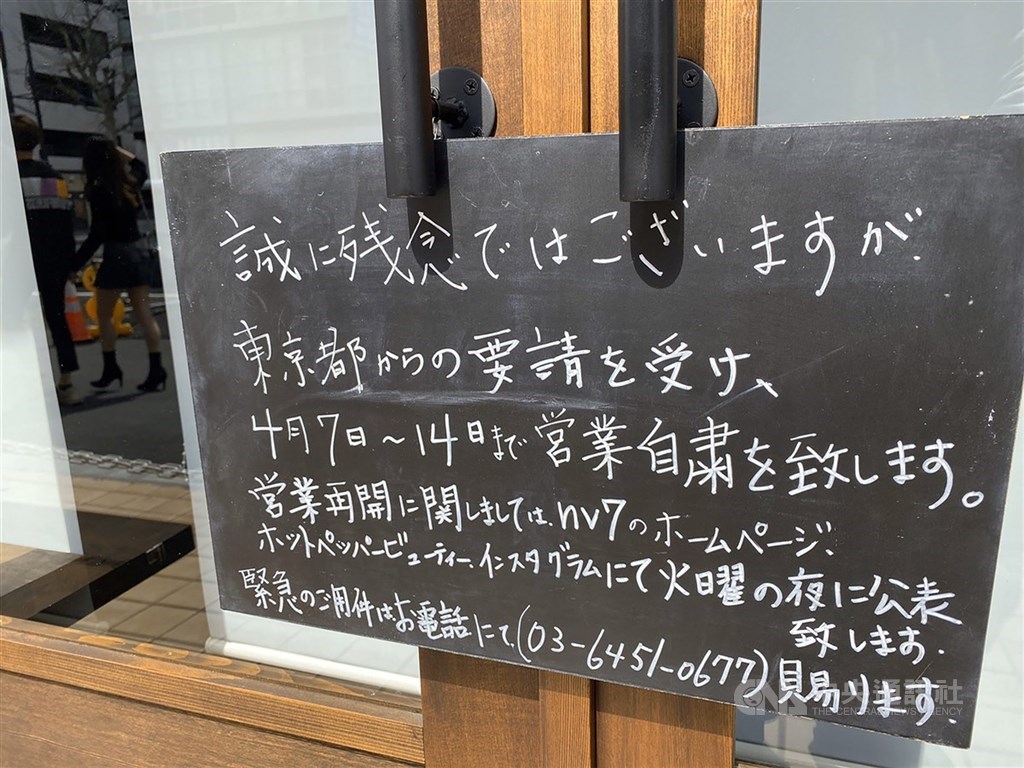 誠に残念ではございますが、
東京都からの要請を受け、
4月7日~14日まで営業自粛を致します。
営業再開に関しましては、nv7のホームページ、
ホットペッパービューティー、インスタグラムにて火曜の夜に公表
致します。
緊急のご用件はお電話にて、(03-6451-0677)貝易ります。
中央通訊社
THE CENTRAL NEWS AGENCY